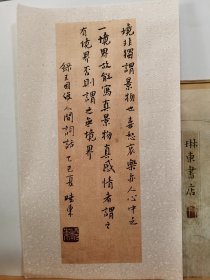 境非獨謂景物也喜怒哀樂亦人心中之
一境界故能寫真景物真感情者謂之
有境界否則謂之无境界
錄王國維人間詞話乙巳夏
琳東書店